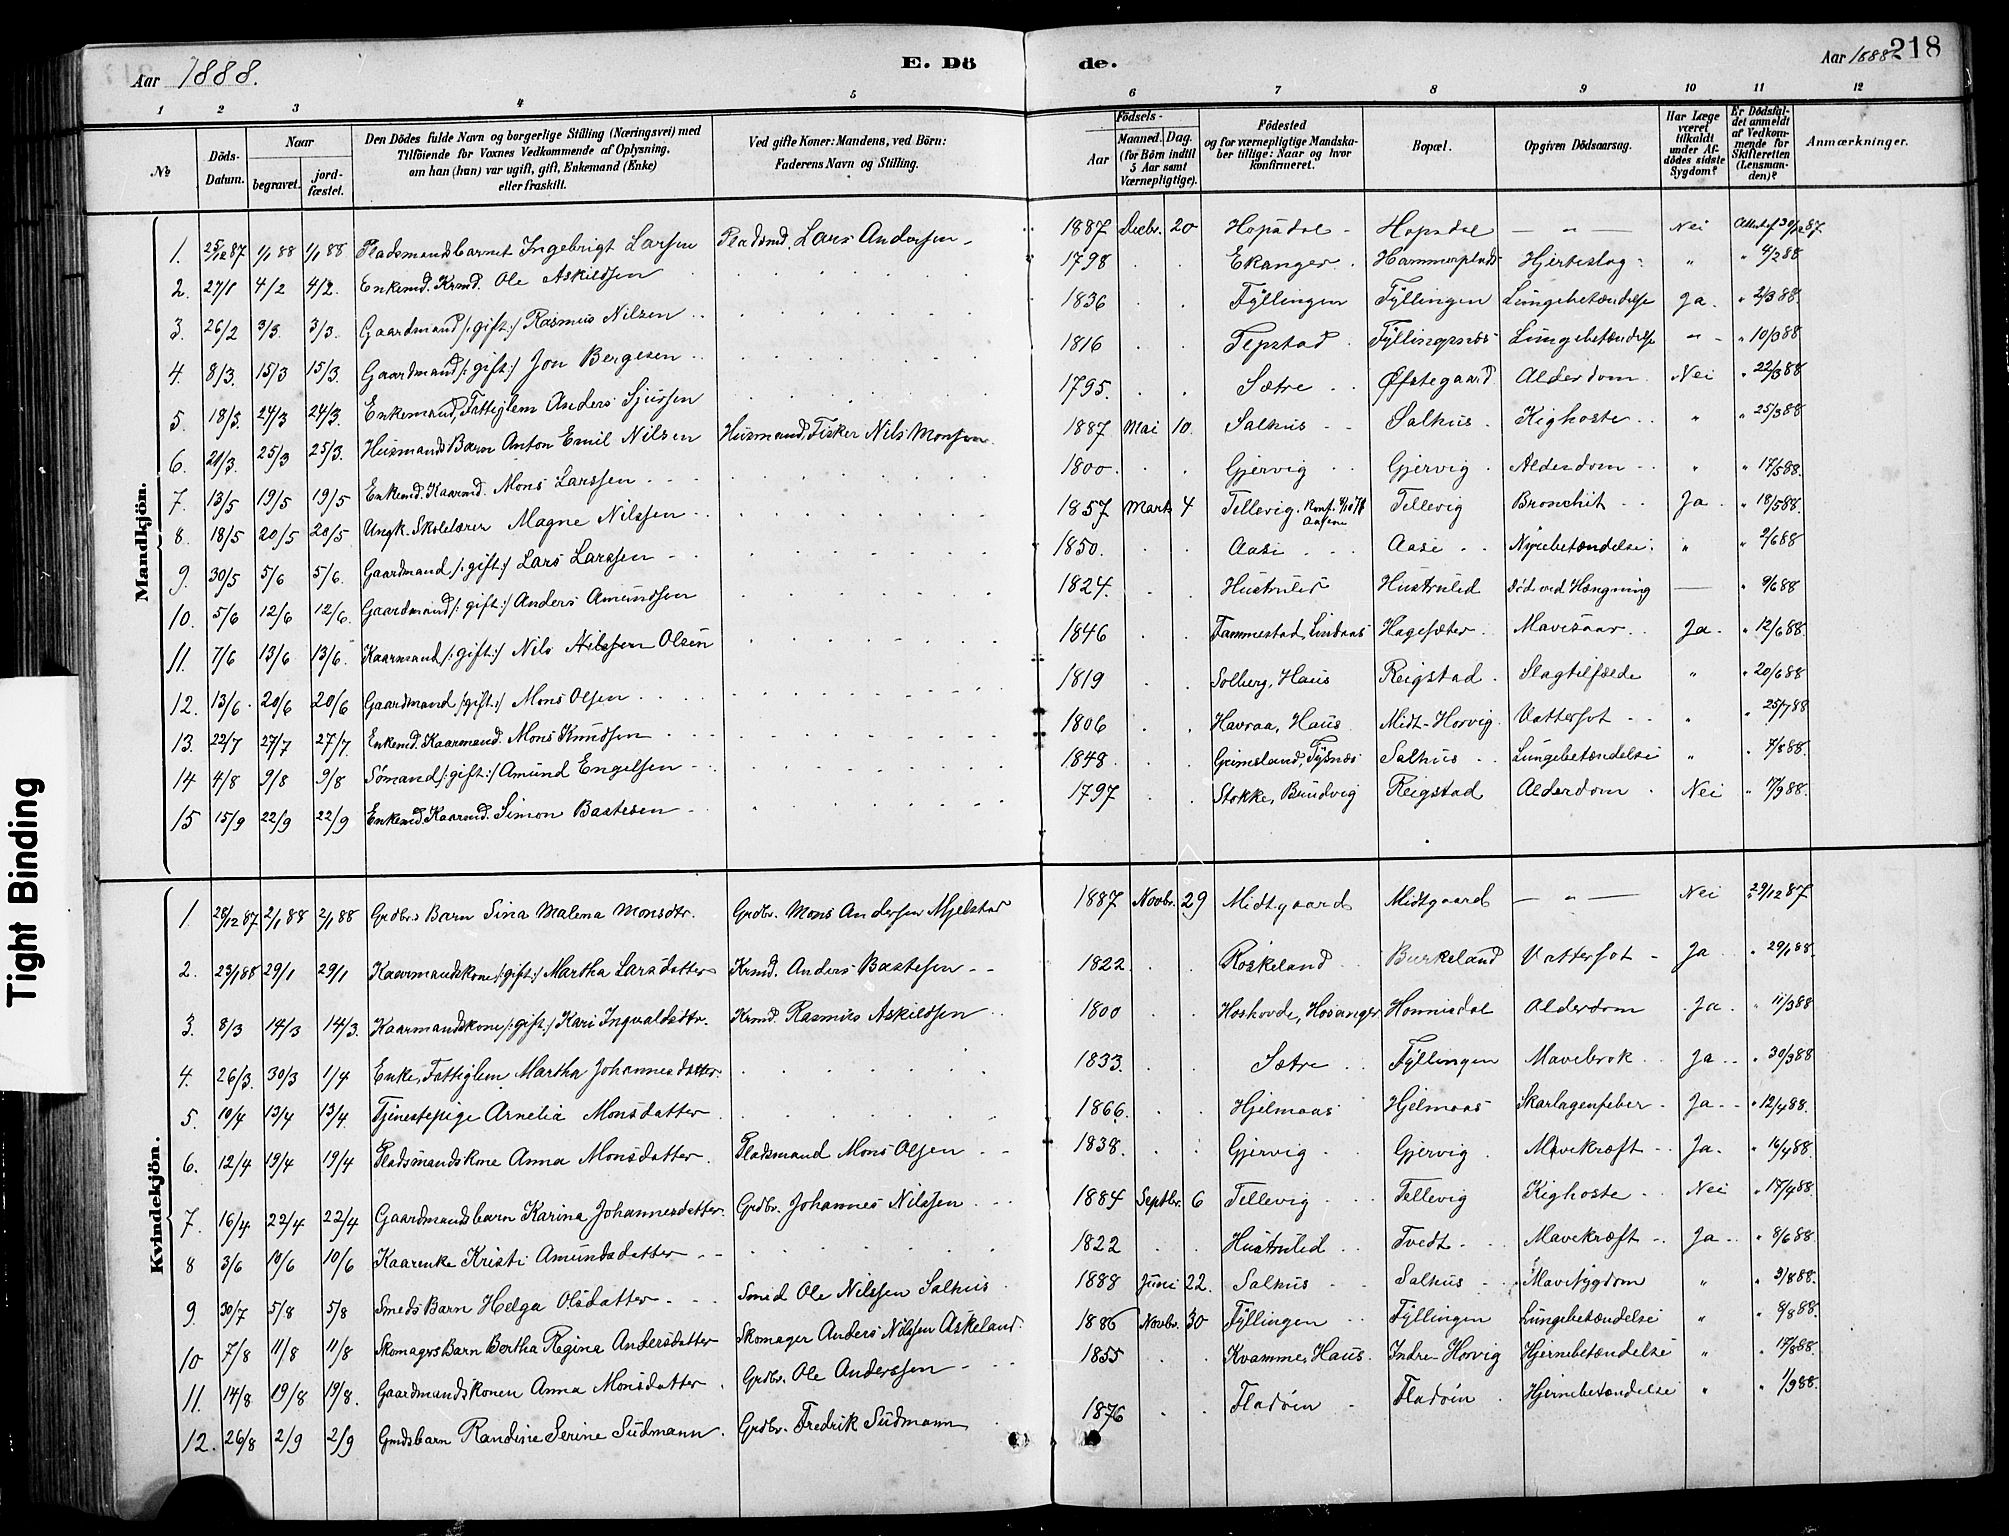 Aar 1888. E. Dö de. Aar 1888 218
1 2 3 4 5 6 7 8 9 10 11 12
№ Döds-Datum. Naar begravet. jord-fæstet. Den Dödes fulde Navn og borgerlige Stilling (Næringsvei) med Tilföiende for Voxnes Vedkommende af Oplysning, om han (hun) var ugift, gift, Enkemand (Enke) eller fraskilt. Ved gifte Koner: Mandens, ved Börn: Faderens Navn og Stilling. Födsels- Aar Maaned. Dag. (for Börn indtil 5 Aar samt Værnepligtige). Födested og for værnepligtige Mandskaber tillige: Naar og hvor konfirmeret. Bopæl. Opgiven Dödsaarsag. Har Læge været tilkaldt under Afdödes sidste Sygdom? Er Dödsfaldet anmeldt af Vedkommende for Skifteretten (Lensmanden)? Anmærkninger.
Mandkjön.
1. 25/12 87 1/1 88 1/1 88 Pladsmandsbarnet Ingebrigt Larsen Pladsmd. Lars Andersen 1887 Decbr. 20 Hopsdal Hopsdal — " — Nei 30/12 87
2. 27/1 4/2 4/2. Enkemd. Krmd. Ole Askildsen 1798 Ekanger Hammerplads Hjerteslag " " 4/2 88
3. 26/2 3/3. 3/3. Gaardmand /: gift :/ Rasmus Nilsen 1836 Fyllingen Fyllingen Lungebetændelse Ja. " 2/3 88.
4. 8/3. 15/3 15/3. Gaardmand /: gift :/ Jon Bergesen 1816 Tepstad Fyllingsnæs Lungebetændelse " " 10/3 88
5. 18/3. 24/3 24/3. Enkemand, Fattiglem Anders Sjursen 1795. Sætre Øfstegaard Alderdom. Nei " 22/3 88
6. 21/3. 25/3 25/3. Husmands Barn Anton Emil Nilsen Husmand, Fisker Nils Monsen. 1887 Mai 10. Salhus Salhus Kighoste " " 25/3 88
7. 13/5 19/5 19/5 Enkemd. Kaarmd. Mons Larssen 1800. Gjervig Gjervig Alderdom " " 17/5 88.
8. 18/5 20/5 20/5 Ungk. Skolelærer Magne Nilssen 1857 Marts 4 Tellevig. Konf. Tellevig Bronchit Ja " 18/5 88.
9. 30/5 5/6 5/6. Gaardmand /: gift :/ Lars Larssen 1850. Aase Aase Nyrebetændelse " " 2/6 88
10. 5/6 12/6 12/6. Gaardmand /: gift :/ Anders Amundsen 1824. Hustruled Hustruled død ved Hængning — " 9/6 88
11. 7/6 13/6 13/6. Kaarmand /: gift :/ Nils Nilssen Olsen 1846 Tammestad, Lindaas Hagesæter Mavesaar Ja. " 12/6 88.
12. 13/6. 20/6 20/6 Gaardmand /: gift :/ Mons Olsen 1819 Solberg, Haus Reigstad Slagtilfælde " " 20/6 88
13. 22/7 27/7 27/7. Enkemd. Kaarmand. Mons Knudsen 1806 Havraa, Haus Midt-Horvig. Vattersot " " 25/7 88
14 4/8 9/8 9/8 Sømand /: gift :/ Amund Engelsen 1848 Grimsland, Tysnæs Salhus Lungebetændelse " " 7/8 88.
15 15/9 22/9 22/9 Enkemd. Kaarmd. Simon Bastesen 1797 Stokke, Bundvig Reigstad Alderdom Nei " 17/9 88.
Kvindekjön.
1. 28/12 87 2/1 88 2/1 88 Grdbr.s Barn Sina Malena Monsdtr. Grdbr. Mons Andersen Mjelstad 1887 Novbr. 29 Midtgaard Midtgaard — " — Nei " 29/12 87
2. 23/1 88 29/1 29/1 Kaarmandskone /: gift :/ Martha Larsdatter Krmd. Anders Bastesen 1822 Røskeland Burkeland Vattersot Ja " 29/1 88.
3. 8/3 14/3 14/3. Kaarmandskone /: gift :/ Kari Ingvaldsdtr. Krmd. Rasmus Askildsen 1800 Hoshovde, Hosanger Honnisdal Alderdom Ja. " 11/3 88
4. 26/3. 30/3 1/4 Enke, Fattiglem Martha Johannesdatter. 1833. Sætre Fyllingen Mavebrok Ja " 30/3 88
5. 10/4 13/4 13/4 Tjenestepige Arnelia Monsdatter 1866. Hjelmaas Hjelmaas Skarlagensfeber Ja " 12/4 88.
6. 12/4 19/4 19/4 Pladsmandskone Anna Monsdatter Pladsmand Mons Olsen 1838. Gjervig Gjervig Mavekræft Ja. " 16/4 88.
7. 16/4 22/4 22/4 Gaardmandsbarn Karina Johannesdatter Grdbr. Johannes Nilssen 1884 Septbr. 6 Tellevig Tellevig Kighoste Nei " 18/4 88.
8 3/6 10/6 10/6 Kaarenke Kristi Amundsdatter 1822 Hustruled Tvedt Mavekræft Ja " 8/6 88
9 30/7 5/8 5/8 Smeds Barn Helga Olsdatter Smed Ole Nilssen Salhus 1888 Juni 22. Salhus Salhus Mavesygdom " " 3/8 88.
10 7/8 11/8 11/8 Skomagers Barn Bertha Regina Andersdatter Skomager Anders Nilssen Askeland 1886 Novbr. 30 Fyllingen Fyllingen Lungebetændelse " " 8/8 88.
11. 14/8 19/8 19/8. Gaardmandskonen Anna Monsdatter Grdbr. Ole Anderssen 1855 Kvamme, Haus. Indre-Horvig Hjernebetændelse " " 17/8 88.
12. 26/8 2/9 2/9 Grndsbarn Randine Serine Sudmann Grdbr. Fredrik Sudmann 1876 Fladöen Fladöen Hjernebetændelse " " 1/9 88.
Tight Binding